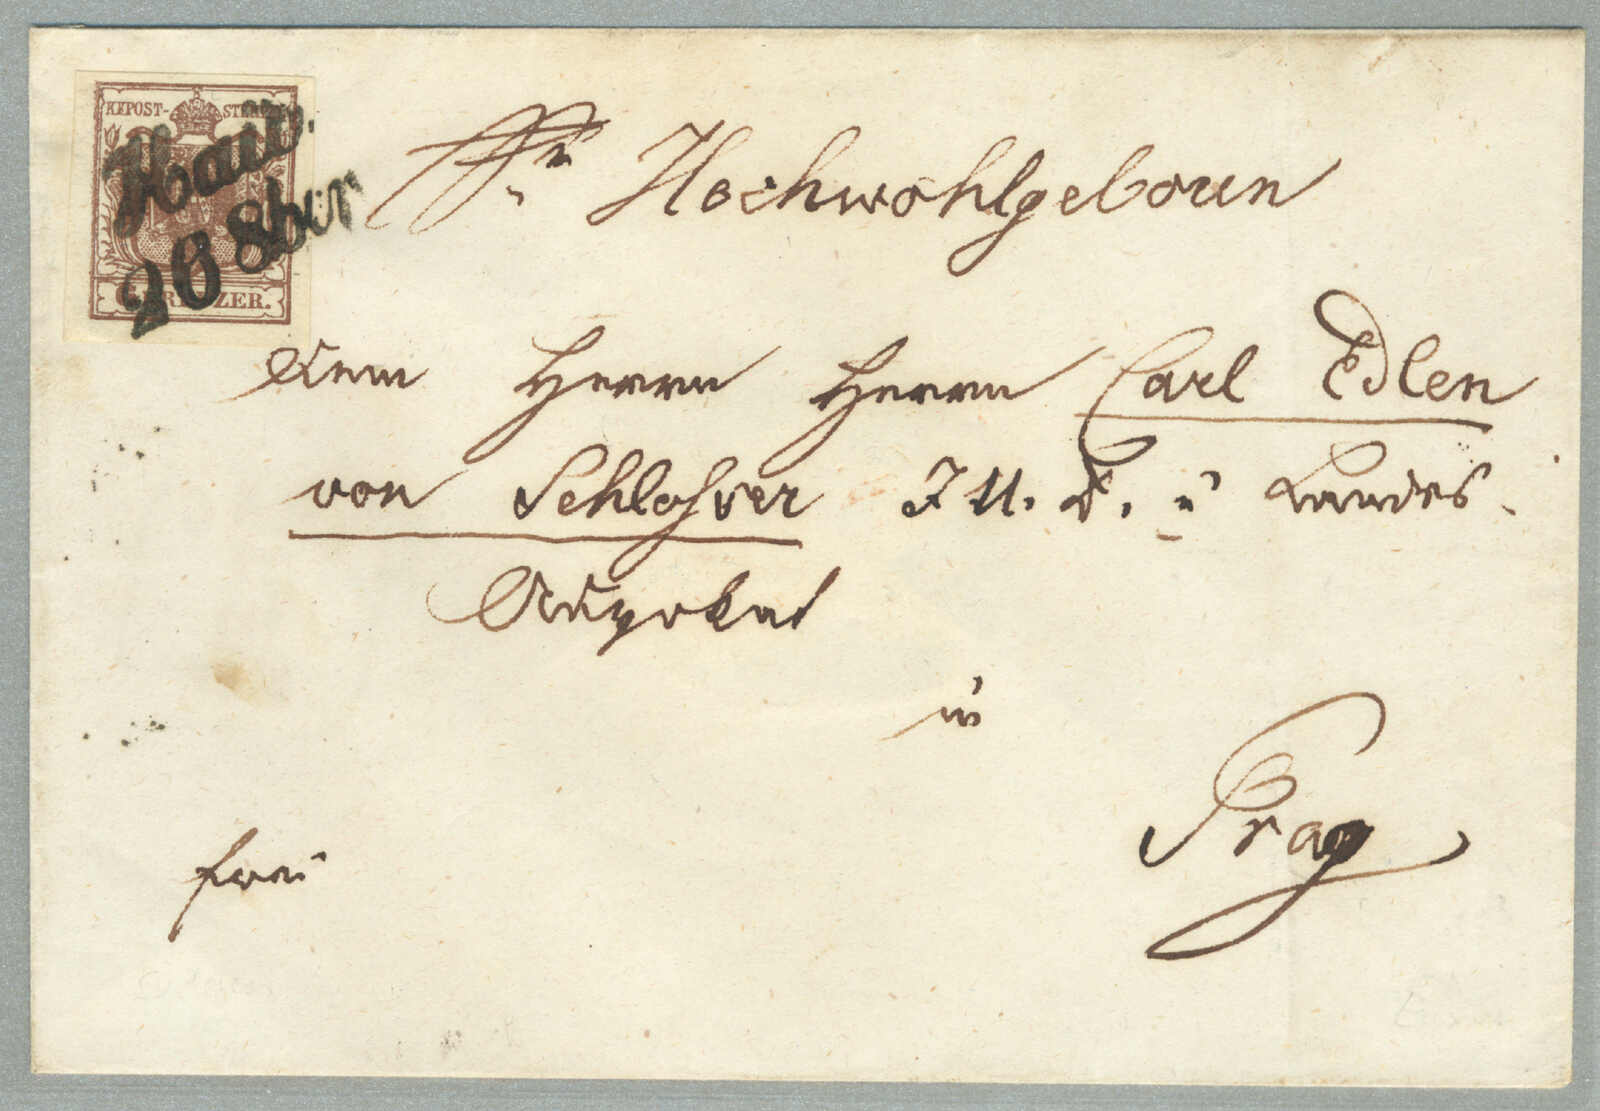 KKPOST- STEMPEL
Haid.
26 8ber
6 KREUZER.
Sr Hochwohlgeborn
Dem Herrn Herrn Carl Edlen
von Schlosser J U. D. u Landes-
Advokat
in
Prag
frei